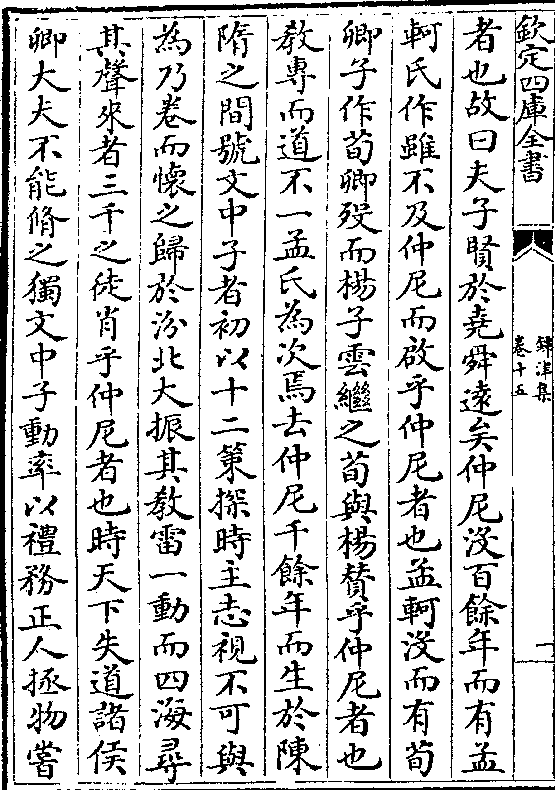 欽定四庫全書
鐔津集
卷十五
一
者也故曰夫子賢於堯舜遠矣仲尼没百餘年而有孟
軻氏作雖不及仲尼而啟乎仲尼者也孟軻没而有荀
卿子作荀卿殁而楊子雲繼之荀與楊賛乎仲尼者也
教專而道不一孟氏為次焉去仲尼千餘年而生於陳
隋之間號文中子者初以十二策探時主志視不可與
為乃卷而懷之歸於汾北大振其教雷一動而四海尋
其聲來者三千之徒肖乎仲尼者也時天下失道諸侯
卿大夫不能脩之獨文中子動率以禮務正人拯物嘗